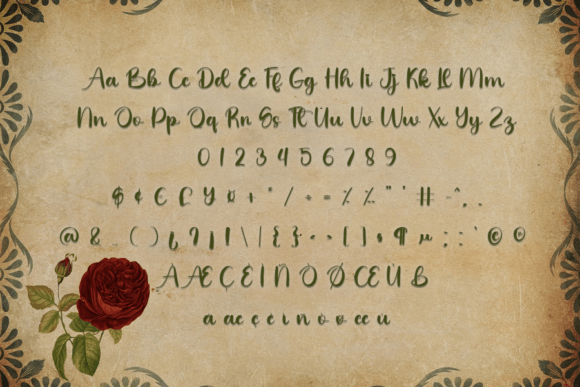 Aa Bb Cc Dd Ee Ff Gg Hh Ii Jj Kk Ll Mm
Nn Oo Pp Qq Rr Ss Tt Uu Vv Ww Xx Yy Zz
0 1 2 3 4 5 6 7 8 9
$ ¢ € £ ¥ ¤ + * / ÷ = % ‰ " ' # - ^ , .
@ & ( ) ¿ ? ¡ ! \ | { } [ ] ¶ µ ; : ' © ®
A Æ Ç E I N O Ø Œ U ß
a æ ç e ı n o ø œ u